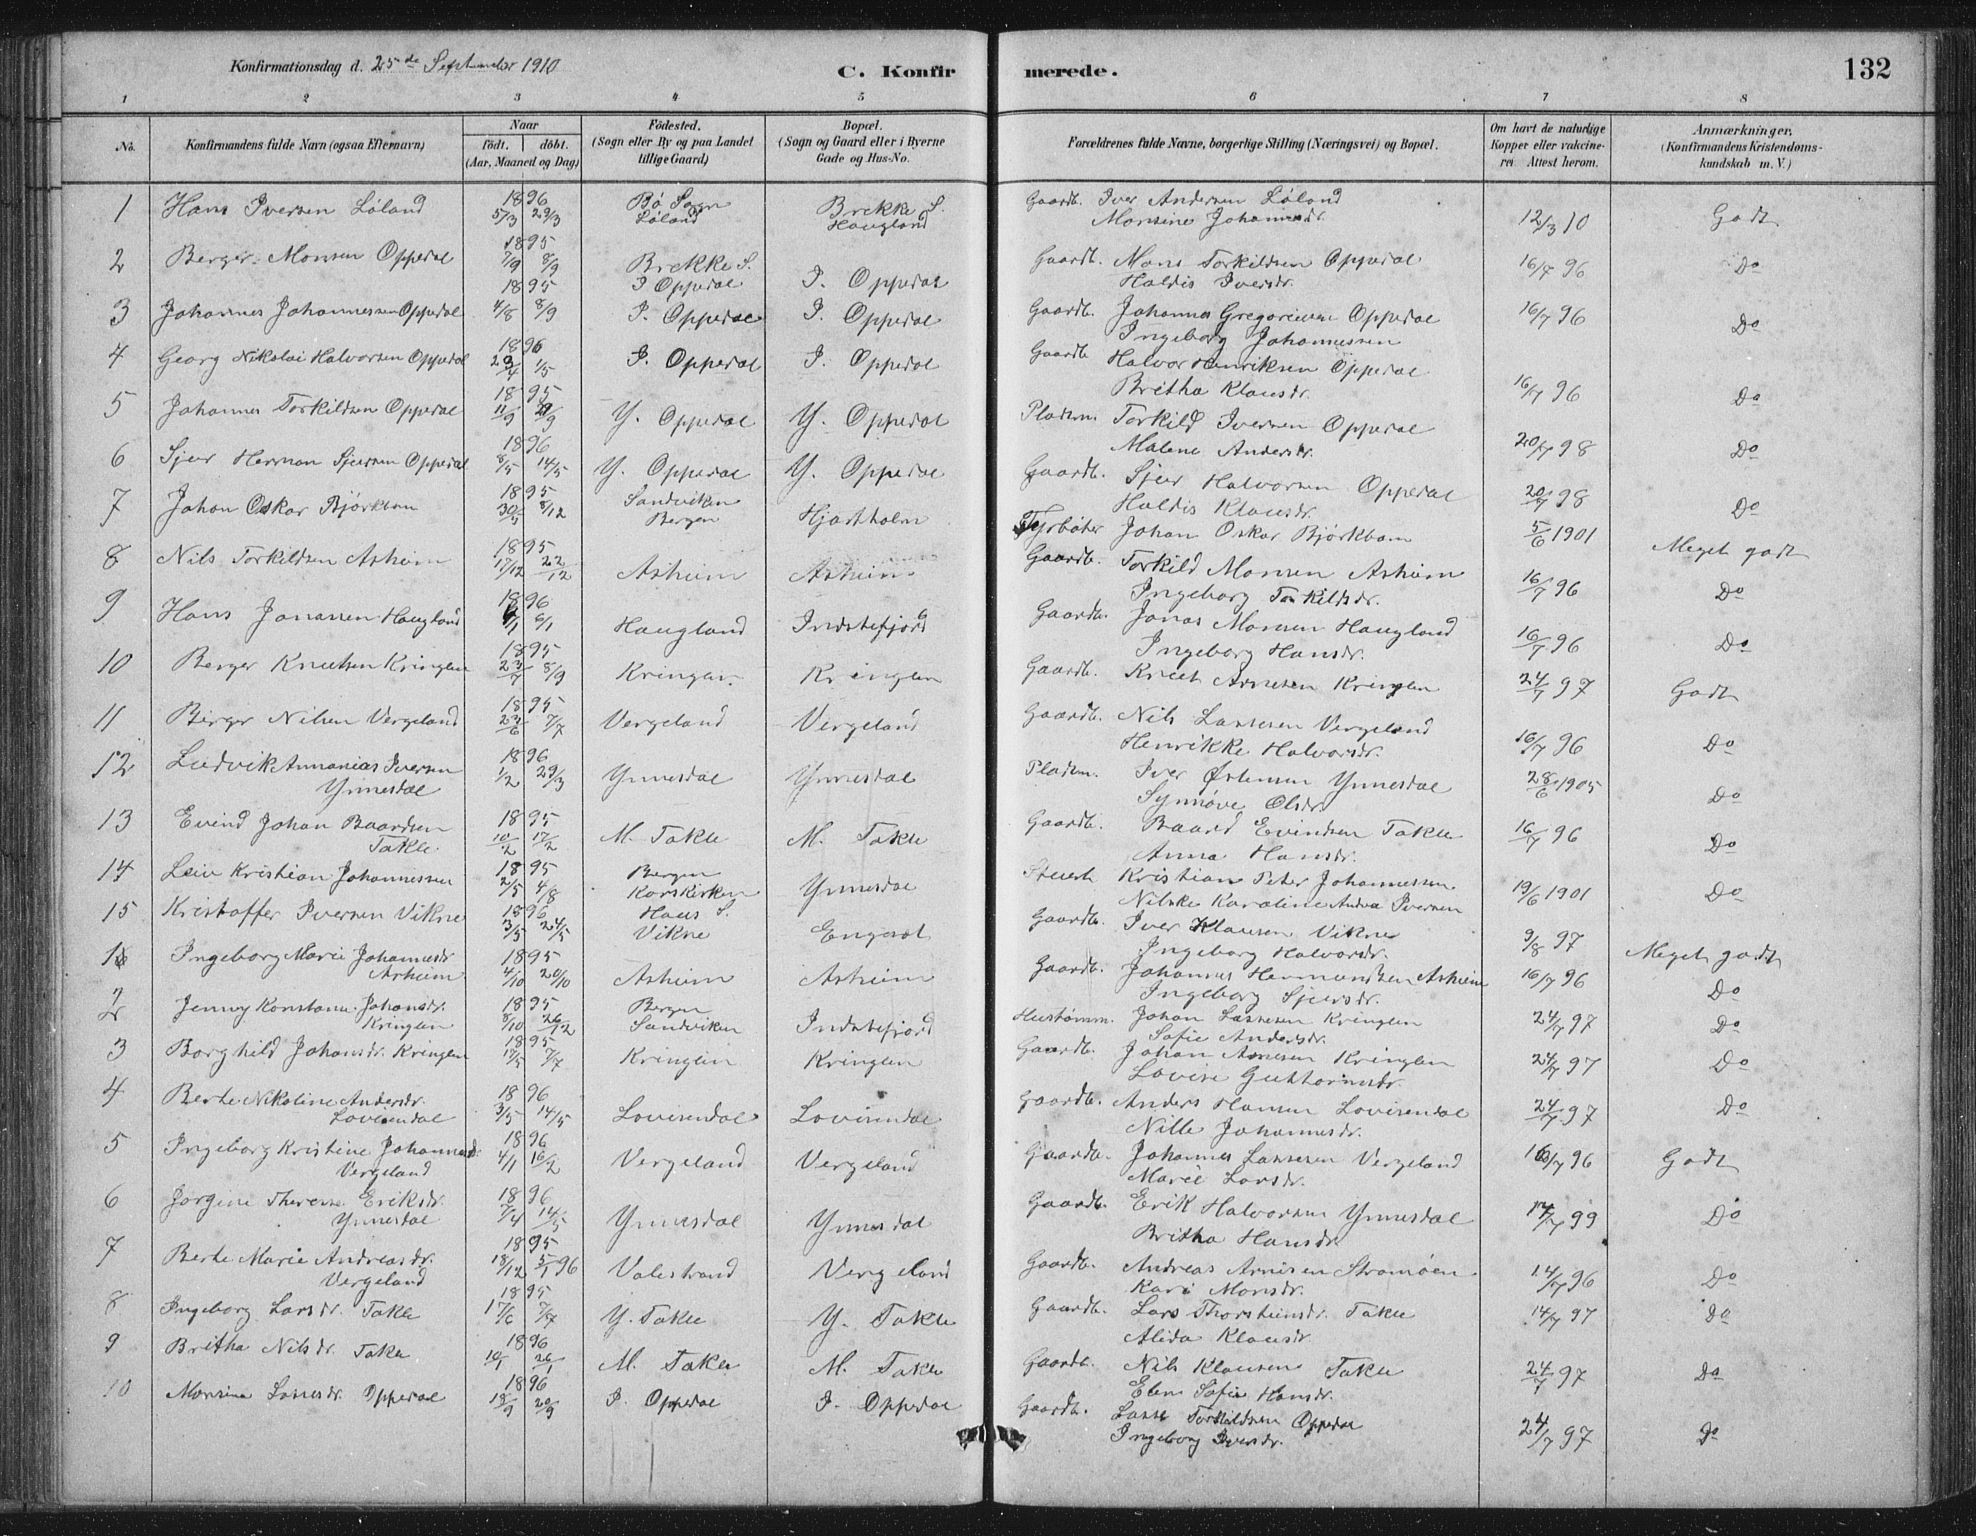 Konfirmationsdag d. 25de September 1910
C. Konfirmerede.
132
1 2 3 4 5 6 7 8
No.
Konfirmandens fulde Navn (ogsaa Efternavn)
Naar
födt. döbt.
(Aar, Maaned og Dag)
Födested.
(Sogn eller By og paa Landet
tillige Gaard)
Bopæl.
(Sogn og Gaard eller i Byerne
Gade og Hus-No.
Forældrenes fulde Navne, borgerlige Stilling (Næringsvei) og Bopæl.
Om havt de naturlige
Kopper eller vakcine-
rei Attest herom.
Anmærkninger,
(Konfirmandens Kristendoms-
kundskab m. V.)
1 Hans Iversen Löland 1896 5/3 29/3 Bø Sogn Löland Brekke S. Haugland Gaardb. Iver Andersen Löland Monsine Johannesdr. 12/3 10 Godt
2 Berger Monsen Oppedal 1895 7/9 8/9 Brekke S. I Oppedal I. Oppedal Gaardb. Mons Torkildsen Oppedal Haldis Iversdr. 16/7 96 Do
3 Johannes Johannessen Oppedal 1895 4/8 8/9 I. Oppedal I. Oppedal Gaardb. Johannes Gregoriusen Oppedal Ingeborg Johannessen 16/7 96 Do
4 Georg Nikolai Halvorsen Oppedal 1896 23/4 1/5 I. Oppedal I. Oppedal Gaardb Halvor Henriksen Oppedal Britha Klausdr. 16/7 96 Do
5 Johannes Torkildsen Oppedal 1895 11/9 29/9 Y. Oppedal Y. Oppedal Pladsm. Torkild Iversen Oppedal Malene Andersdr. 20/7 98 Do
6 Sjur Herman Sjursen Oppedal 1896 8/5 14/5 Y. Oppedal Y. Oppedal Gaardb. Sjur Halvorsen Oppedal Haldis Klausdr. 20/7 98 Do
7 Johan Oskar Björkbom 1895 30/5 8/12 Sandviken Bergen Hjortholm Fyrböter Johan Oskar Björkbom 5/6 1901 Meget godt
8 Nils Torkildsen Asheim 1895 17/12 22/12 Asheim Asheim Gaardb. Torkild Monsen Asheim Ingeborg Torkildsdr. 16/7 96 Do
9 Hans Jonassen Haugland 1896 6/1 Haugland Indrefjord Gaardb. Jonas Monsen Haugland Ingeborg Hansdr. 16/7 96 Do
10 Berger Knutsen Kringlen 1895 23/7 8/9 Kringlen Kringlen Gaardb. Knut Arnesen Kringlen 24/7 97 Godt
11 Birger Nilsen Vergeland 1895 23/6 7/7 Vergeland Vergeland Gaardb. Nils Lassesen Vergeland Henrikke Halvorsdr. 16/7 96 Do
12 Ludvik Annanias Iversen Ynnesdal 1896 1/2 29/3 Ynnesdal Ynnesdal Pladsm. Iver Østensen Ynnesdal Synnöve Olsdr. 28/6 1905 Do
13 Evind Johan Baardsen Takle 1895 10/2 17/2 M. Takle M. Takle Gaardb. Baard Evindsen Takle Anna Hansdr. 16/7 96 Do
14 Leiv Kristian Johannessen 1895 2/5 4/8 Bergen Korskirken Ynnesdal Stuert Kristian Peter Johannessen. Nilske Karoline Andrea Iversen 19/6 1901 Do
15 Kristoffer Iversen Vikne 1896 3/5 24/5 Haus S. Vikne Engesæt Gaardb. Iver Klausen Vikne Ingeborg Halvorsdr. 9/8 97 Meget godt
1 Ingeborg Marie Johannesdr Asheim 1895 4/10 20/10 Asheim Asheim Gaardb. Johannes Hermundsen Asheim Ingeborg Sjursdr. 16/7 96 Do
2 Jenny Konstanse Johansdr. Kringlen 1895 8/10 26/12 Bergen Sandviken Indrefjord Huusmm. Johan Lassesen Kringlen Sofie Andersdr. 24/7 97 Do
3 Borghild Johansdr. Kringlen 1895 17/5 7/7 Kringlen Kringlen Gaardb. Johan Arnesen Kringlen Lovise Guttormsdr. 24/7 97 Do
4 Berte Nikoline Andersdr. Lovisendal 1896 3/5 14/5 Lovisendal Lovisendal Gaardb. Anders Hansen Lovisendal Nille Johannesdr. 24/7 97 Do
5 Ingeborg Kristine Johannesdr. Vergeland 1896 4/1 16/2 Vergeland Vergeland Gaardb. Johannes Lassesen Vergeland Marie Larsdr. 16/7 96 Godt
6 Jorgine Therese Eriksdr. Ynnesdal 1896 7/4 14/5 Ynnesdal Ynnesdal Gaardb. Erik Halvorsen Ynnesdal Britha Hansdr. 14/7 99 Do
7 Berte Marie Andreasdr. Vergeland 1895 18/12 5/1 96 Valestrand Vergeland Gaardb. Andreas Arnisen Strømöen. Kari Monsdr. 14/7 96 Do
8 Ingeborg Larsdr. Takle 1895 17/6 7/7 Y. Takle Y. Takle Gaardb. Lars Thorsteinsdr. Takle Alida Klausdr. 14/7 97 Do
9 Britha Nilsdr. Takle 1896 10/1 26/1 M. Takle M. Takle Gaardb. Nils Klausen Takle Elen Sofie Hansdr. 24/7 97 Do
10 Monsina Lassesdr. Oppedal 1896 18/9 20/9 I. Oppedal I. Oppedal Gaardb. Lasse Torkildsen Oppedal Ingeborg Iversdr. 24/7 97 Do